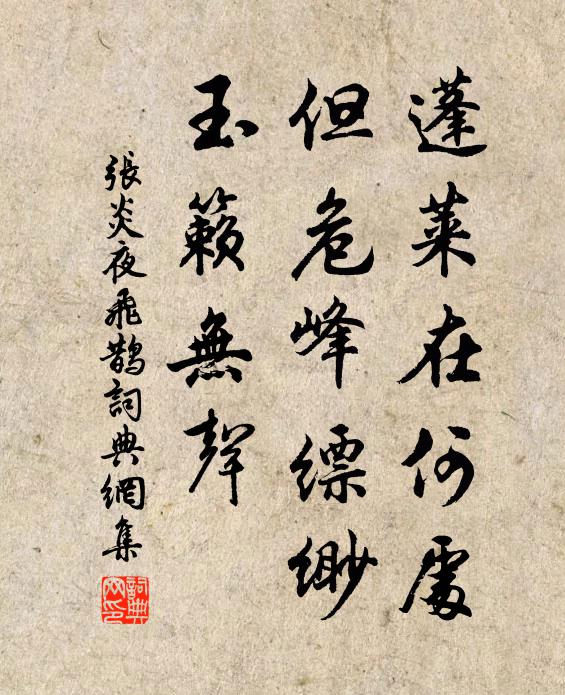 蓬萊在何處
但危峰縹緲
玉籟無聲
張炎夜飛鵲詞典網集
詞典网印